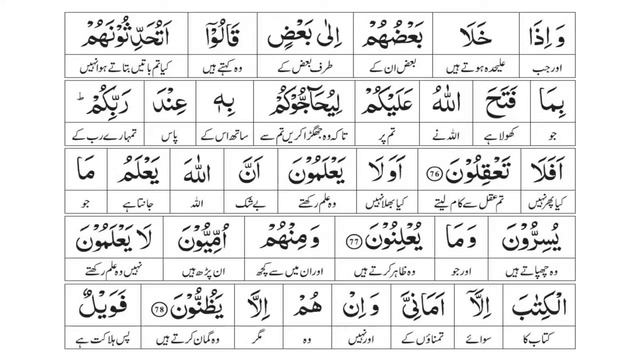 وَ اِذَا خَلَا بَعْضُهُمْ اِلٰى بَعْضٍ قَالُوْۤا اَتُحَدِّثُوْنَهُمْ
اور جب علیحدہ ہوتے ہیں بعض ان کے طرف بعض کے وہ کہتے ہیں کیا تم باتیں بتاتے ہو انہیں
بِمَا فَتَحَ اللّٰهُ عَلَيْكُمْ لِيُحَآجُّوْكُمْ بِهٖ عِنْدَ رَبِّكُمْ ؕ
جو کھولا ہے اللہ نے تم پر تاکہ وہ جھگڑا کریں تم سے ساتھ اس کے پاس تمہارے رب کے
اَفَلَا تَعْقِلُوْنَ 76 اَوَ لَا يَعْلَمُوْنَ اَنَّ اللّٰهَ يَعْلَمُ مَا
کیا پھر نہیں تم عقل سے کام لیتے کیا بھلا نہیں وہ علم رکھتے بے شک اللہ جانتا ہے جو
يُسِرُّوْنَ وَ مَا يُعْلِنُوْنَ 77 وَ مِنْهُمْ اُمِّيُّوْنَ لَا يَعْلَمُوْنَ
وہ چھپاتے ہیں اور جو وہ ظاہر کرتے ہیں اور ان میں سے کچھ ان پڑھ ہیں نہیں وہ علم رکھتے
الْكِتٰبَ اِلَّاۤ اَمَانِيَّ وَ اِنْ هُمْ اِلَّا يَظُنُّوْنَ 78 فَوَيْلٌ
کتاب کا سوائے تمناؤں کے اور نہیں وہ مگر وہ گمان کرتے ہیں پس ہلاکت ہے